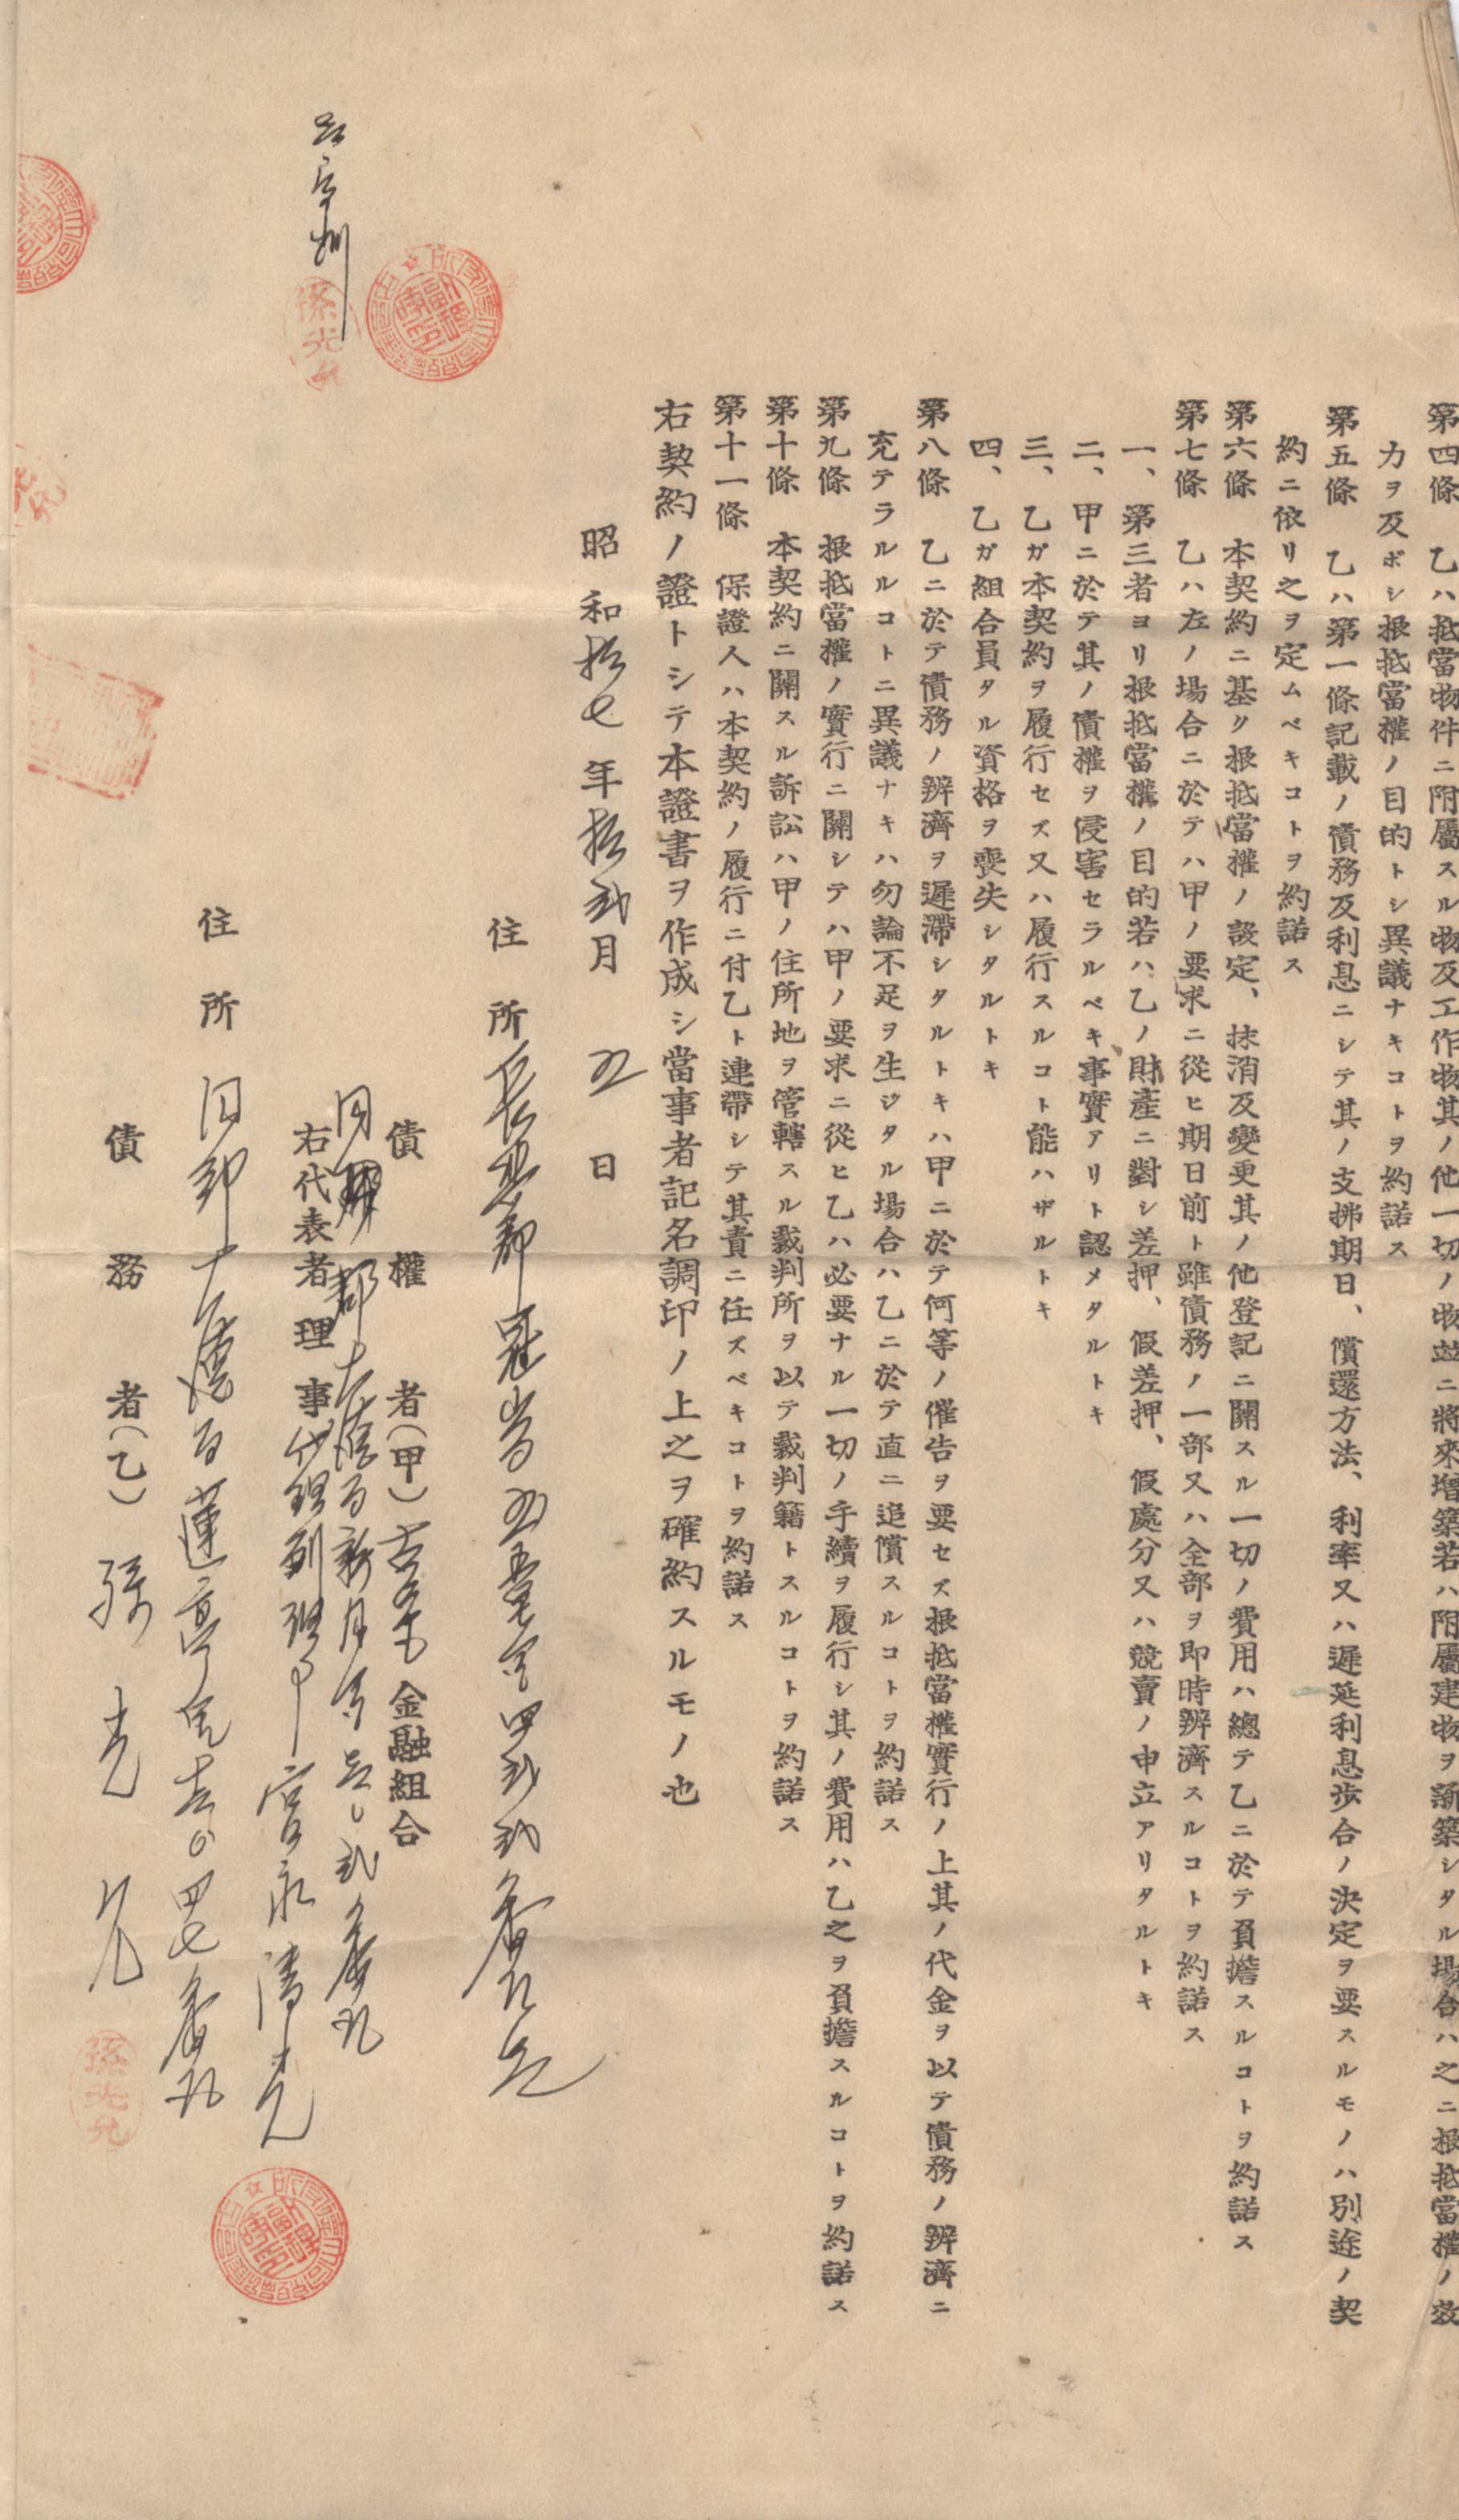 第四條　乙ハ抵當物件ニ附屬スル物及工作物其ノ他一切ノ物竝ニ將來増築若ハ附屬建物ヲ新築シタル場合ハ之ニ根抵當權ノ效
力ヲ及ボシ根抵當權ノ目的トシ異議ナキコトヲ約諾ス
第五條　乙ハ第一條記載ノ債務及利息ニシテ其ノ支拂期日、償還方法、利率又ハ遲延利息歩合ノ決定ヲ要スルモノハ別途ノ契
約ニ依リ之ヲ定ムベキコトヲ約諾ス
第六條　本契約ニ基ク根抵當權ノ設定、抹消及變更其ノ他登記ニ關スル一切ノ費用ハ總テ乙ニ於テ負擔スルコトヲ約諾ス
第七條　乙ハ左ノ場合ニ於テハ甲ノ要求ニ從ヒ期日前ト雖債務ノ一部又ハ全部ヲ即時辨濟スルコトヲ約諾ス
一、第三者ヨリ根抵當權ノ目的若ハ乙ノ財產ニ對シ差押、假差押、假處分又ハ競賣ノ申立アリタルトキ
二、甲ニ於テ其ノ債權ヲ侵害セラルベキ事實アリト認メタルトキ
三、乙ガ本契約ヲ履行セズ又ハ履行スルコト能ハザルトキ
四、乙ガ組合員タル資格ヲ喪失シタルトキ
第八條　乙ニ於テ債務ノ辨濟ヲ遲滯シタルトキハ甲ニ於テ何等ノ催告ヲ要セズ根抵當權實行ノ上其ノ代金ヲ以テ債務ノ辨濟ニ
充テラルルコトニ異議ナキハ勿論不足ヲ生ジタル場合ハ乙ニ於テ直ニ追償スルコトヲ約諾ス
第九條　根抵當權ノ實行ニ關シテハ甲ノ要求ニ從ヒ乙ハ必要ナル一切ノ手續ヲ履行シ其ノ費用ハ乙之ヲ負擔スルコトヲ約諾ス
第十條　本契約ニ關スル訴訟ハ甲ノ住所地ヲ管轄スル裁判所ヲ以テ裁判籍トスルコトヲ約諾ス
第十一條　保證人ハ本契約ノ履行ニ付乙ト連帶シテ其責ニ任ズベキコトヲ約諾ス
右契約ノ證トシテ本證書ヲ作成シ當事者記名調印ノ上之ヲ確約スルモノ也
昭和拾七年拾貳月五日
住所
債權者（甲）金融組合
同郡
右代表者理事
宮永清光
住所　同郡
債務者（乙）孫光允
孫光允
孫光允